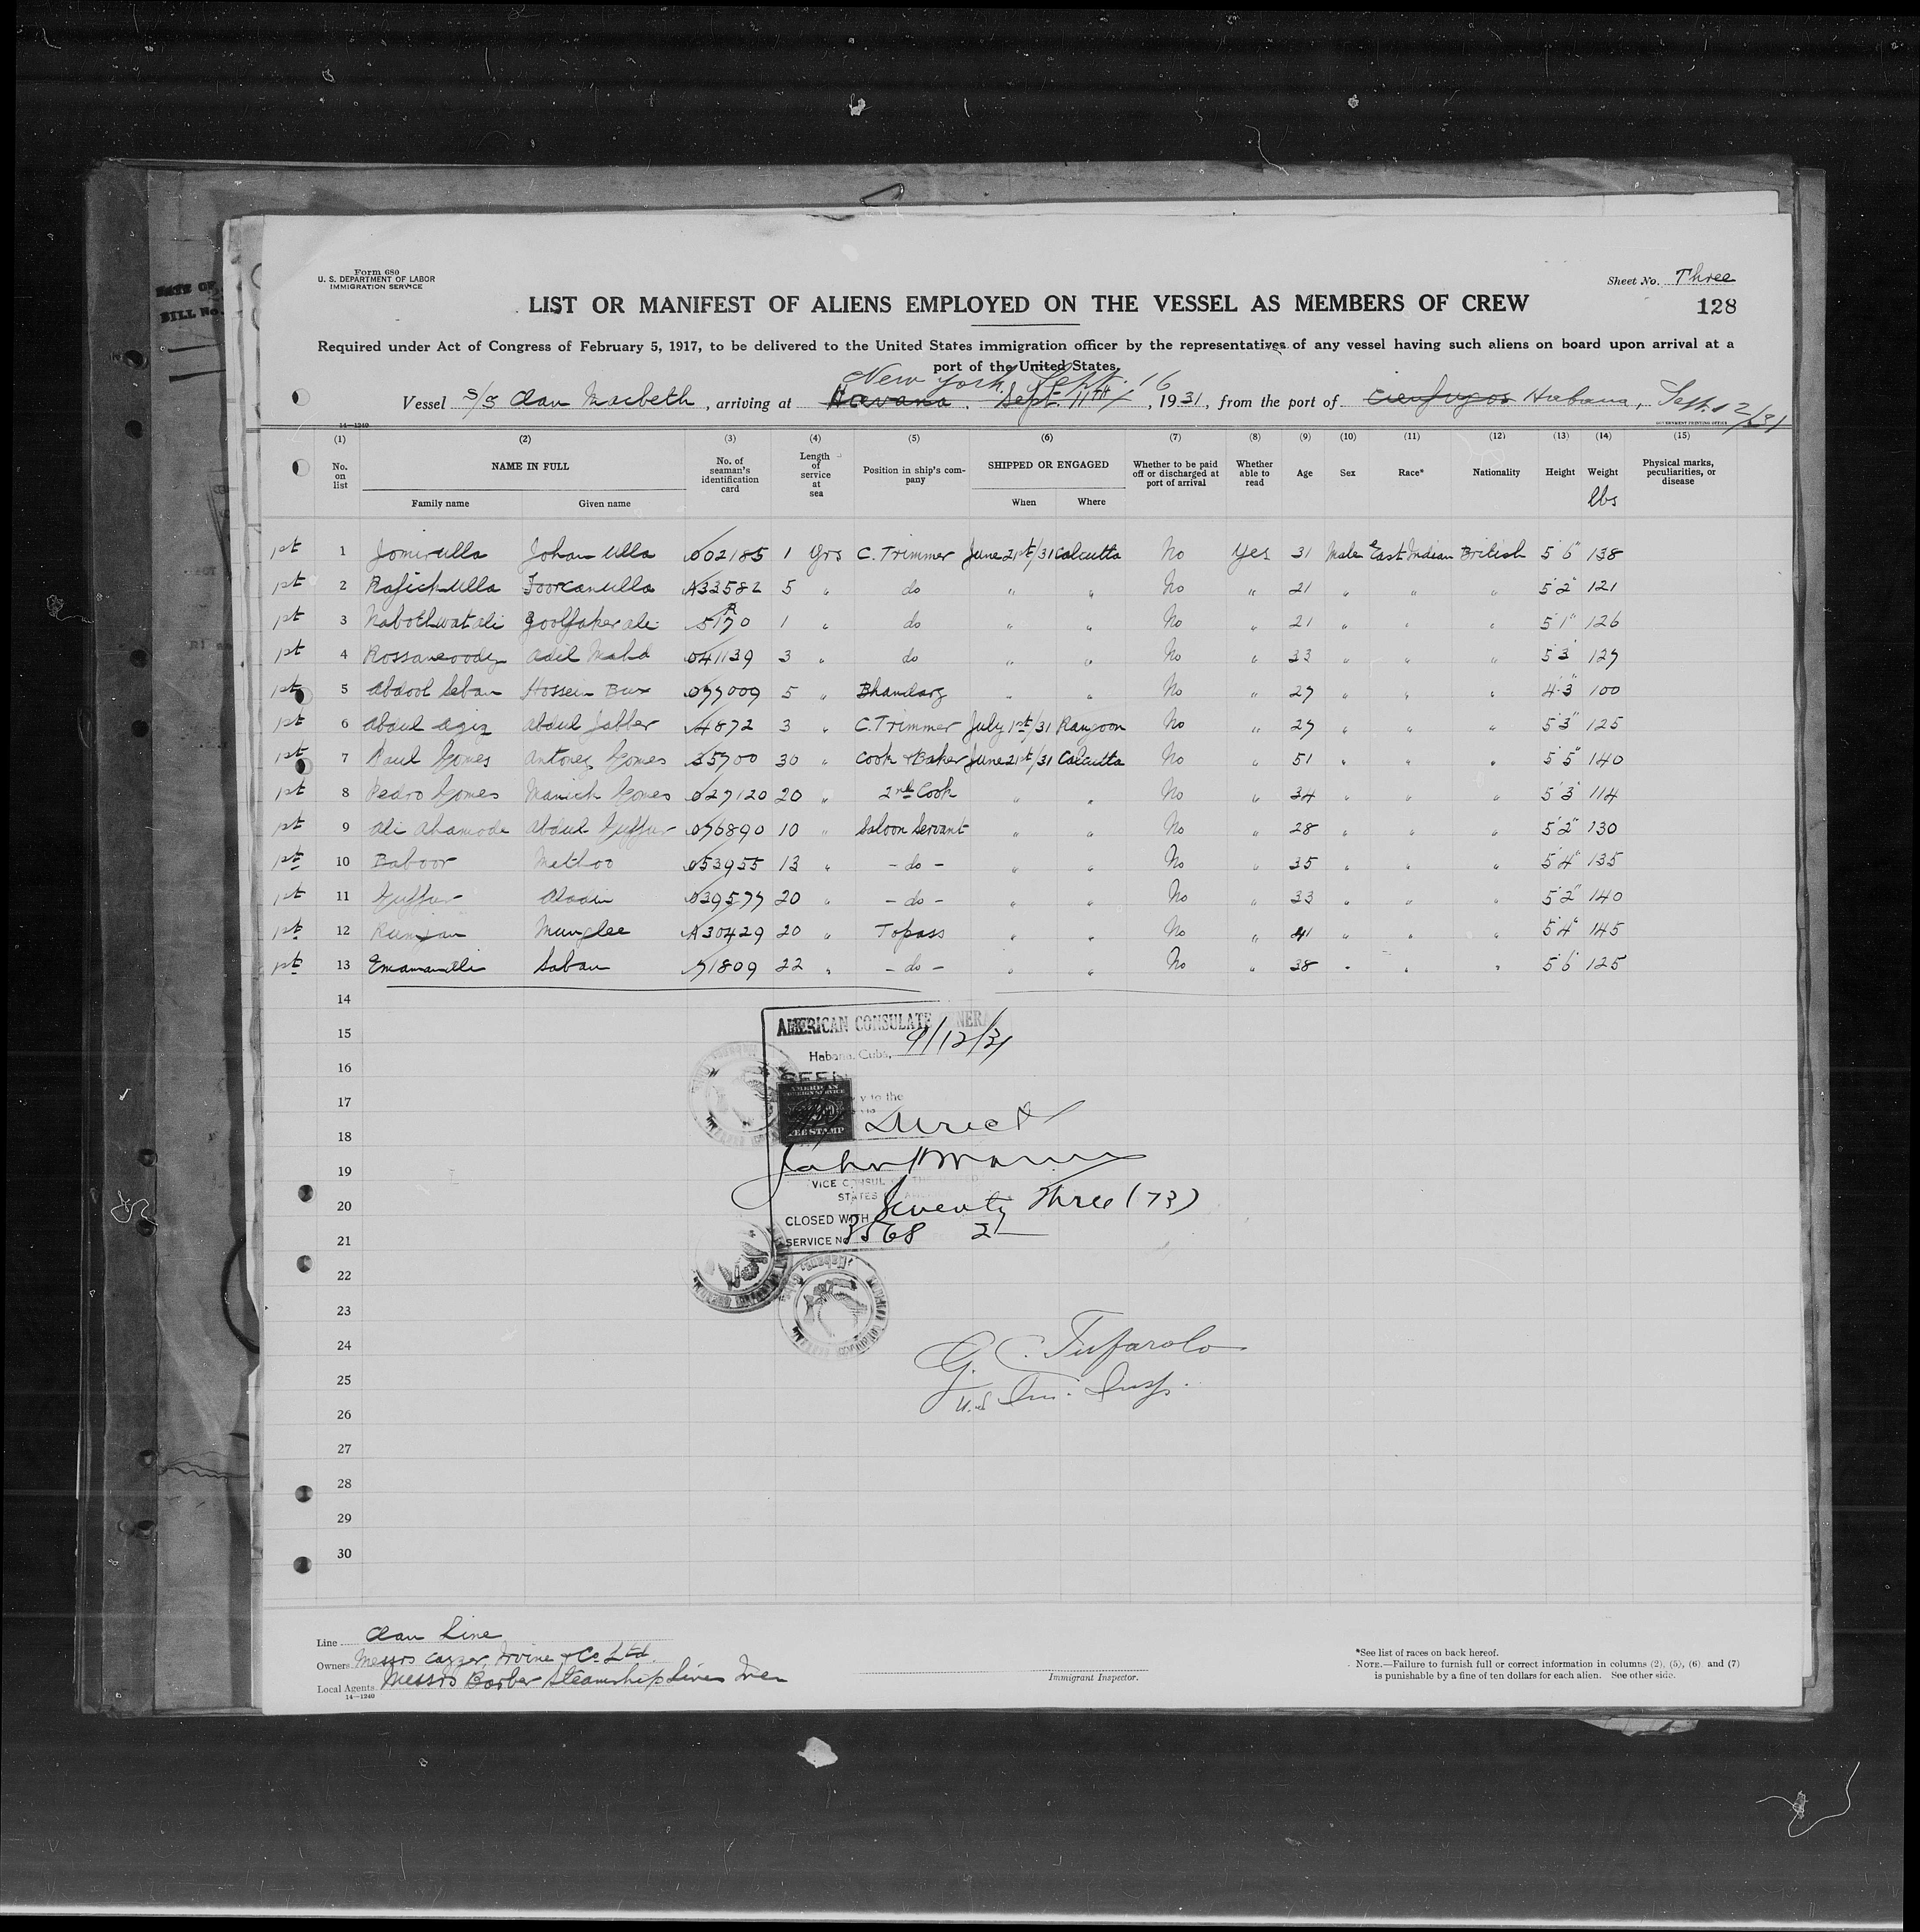 Form 680
U. S. DEPARTMENT OF LABOR
IMMIGRATION SERVICE
Sheet No. Three
128
LIST OR MANIFEST OF ALIENS EMPLOYED ON THE VESSEL AS MEMBERS OF CREW
Required under Act of Congress of February 5, 1917, to be delivered to the United States immigration officer by the representatives of any vessel having such aliens on board upon arrival at a
port of the United States.
New York, Sept. 16
Vessel S/S Clan Macbeth, arriving at Havana. Sept. 11th, 1931, from the port of Cienfuegos Habana, Sept. 12/31
14—1240
GOVERNMENT PRINTING OFFICE
(1) (2) (3) (4) (5) (6) (7) (8) (9) (10) (11) (12) (13) (14) (15)
No. on list NAME IN FULL No. of seaman's identification card Length of service at sea Position in ship's company SHIPPED OR ENGAGED Whether to be paid off or discharged at port of arrival Whether able to read Age Sex Race* Nationality Height Weight lbs Physical marks, peculiarities, or disease
Family name Given name When Where
1st 1 Jomirulla Johan Ulla 002185 1 yrs C. Trimmer June 21st/31 Calcutta No Yes 31 Male East Indian British 5'6" 138
1st 2 Rafickulla Toorcanulla A33582 5 " do " " No " 21 " " " 5'2" 121
1st 3 Nabothwatali Goolfaker ali 5170 1 " do " " No " 21 " " " 5'1" 126
1st 4 Rossaneoody Adil Mahd 041139 3 " do " " No " 33 " " " 5'3" 127
1st 5 Abdool Seban Hossein Bux 077009 5 " Bhandary " " No " 27 " " " 4'3" 100
1st 6 Abdul Aziz Abdul Jabber 4872 3 " C. Trimmer July 1st/31 Rangoon No " 27 " " " 5'3" 125
1st 7 Paul Gomes Antony Gomes 35700 30 " Cook & Baker June 21st/31 Calcutta No " 51 " " " 5'5" 140
1st 8 Pedro Gomes Manick Gomes 027120 20 " 2nd Cook " " No " 34 " " " 5'3" 114
1st 9 Ali Ahamode Abdul Guffur 076890 10 " Saloon Servant " " No " 28 " " " 5'2" 130
1st 10 Baboor Methoo 053955 13 " - do - " " No " 35 " " " 5'4" 135
1st 11 Guffur Aladin 039577 20 " - do - " " No " 33 " " " 5'2" 140
1st 12 Ramjan Munglee A30429 20 " Topass " " No " 41 " " " 5'4" 145
1st 13 Emamaulli Saban 71809 22 " - do - " " No " 38 " " " 5'6" 125
14
15
16
17
18
19
20
21
22
23
24
25
26
27
28
29
30
AMERICAN CONSULATE GENERAL
Habana, Cuba, 9/12/31
SEEN
AMERICAN
FOREIGN SERVICE
FEE STAMP
Direct
VICE CONSUL OF THE UNITED
STATES
CLOSED WITH Seventy Three (73)
SERVICE No 3568
G. C. Tufarolo
U.S. Im. Insp.
Line Clan Line
Owners Messrs Cayzer, Irvine & Co Ltd
Local Agents Messrs Barber Steamship Lines Inc
14—1240
Immigrant Inspector.
*See list of races on back hereof.
NOTE.—Failure to furnish full or correct information in columns (2), (5), (6) and (7)
is punishable by a fine of ten dollars for each alien. See other side.